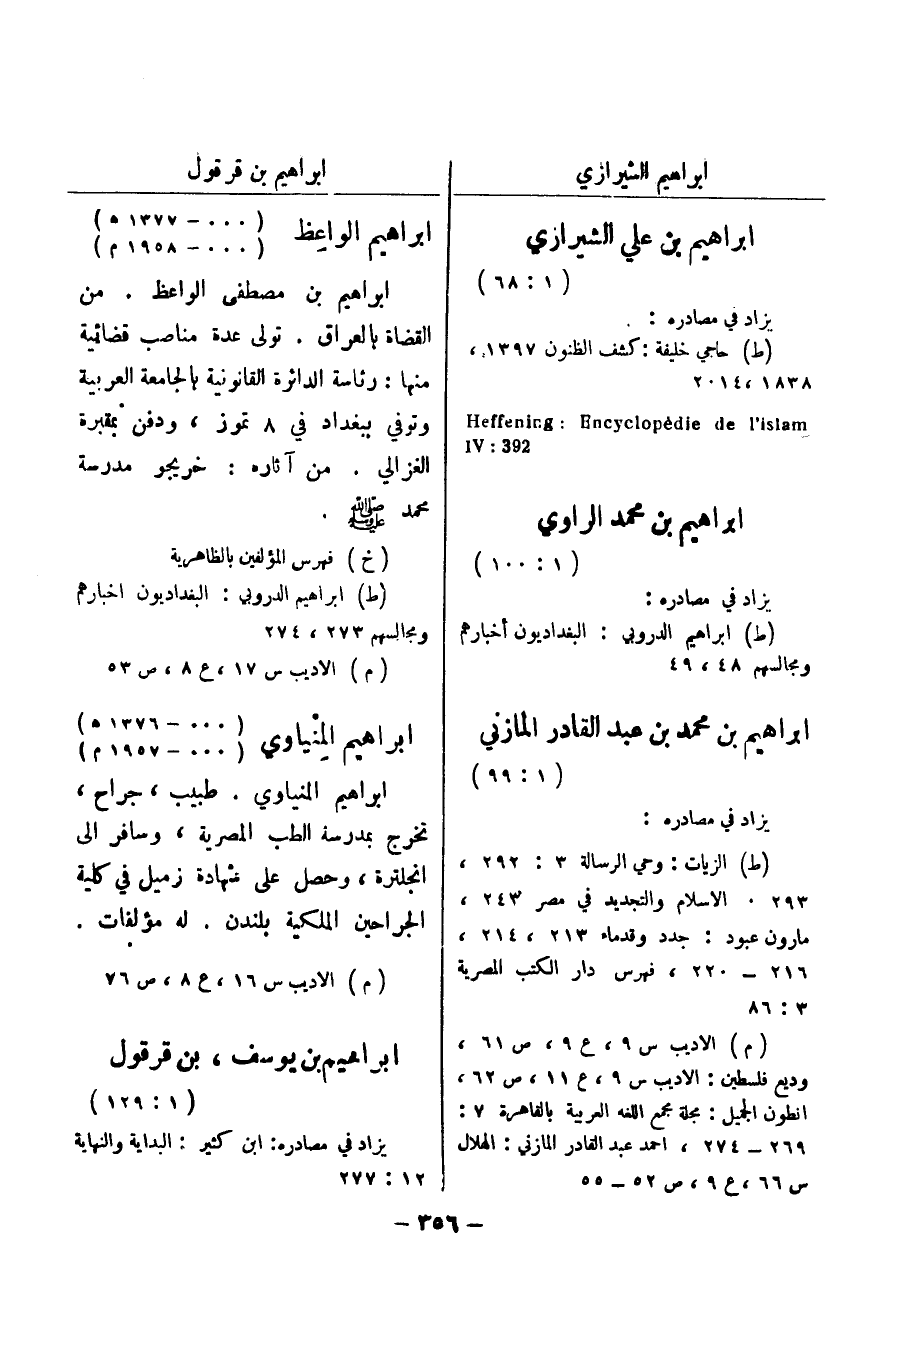 ابراهيم الشيرازي
ابراهيم بن علي الشيرازي
( ١ : ٦٨ )
يزاد في مصادره :
(ط) حاجي خليفة : كشف الظنون ١٣٩٧ ،
١٨٣٨ ، ٢٠١٤
Heffening : Encyclopédie de l'islam
IV : 392
ابراهيم بن محمد الراوي
( ١ : ١٠٠ )
يزاد في مصادره :
(ط) ابراهيم الدروبي : البغداديون أخبارهم
ومجالسهم ٤٨ ، ٤٩
ابراهيم بن محمد بن عبد القادر المازني
( ١ : ٩٩ )
يزاد في مصادره :
(ط) الزيات : وحي الرسالة ٣ : ٢٩٢ ،
٢٩٣ . الاسلام والتجديد في مصر ٢٤٣ ،
مارون عبود : جدد وقدماء ٢١٣ ، ٢١٤ ،
٢١٦ – ٢٢٠ ، فهرس دار الكتب المصرية
٣ : ٨٦
( م ) الاديب س ٩ ، ع ٩ ، ص ٦١ ،
وديع فلسطين : الاديب س ٩ ، ع ١١ ، ص ٦٢ ،
انطون الجميل : مجلة مجمع اللغه العربية بالقاهرة ٧ :
٢٦٩ – ٢٧٤ ، احمد عبد القادر المازني : الهلال
س ٦٦ ، ع ٩ ، ص ٥٢ – ٥٥
ابراهيم بن قرقول
ابراهيم الواعِظ ( ٠٠٠ – ١٣٧٧ ه )
( ٠٠٠ – ١٩٥٨ م )
ابراهيم بن مصطفى الواعظ . من
القضاة بالعراق . تولى عدة مناصب قضائية
منها : رئاسة الدائرة القانونية بالجامعة العربية
وتوفي ببغداد في ٨ تموز ، ودفن بمقبرة
الغزالي . من آثاره : خريجو مدرسة
محمد ﷺ .
( خ ) فهرس المؤلفين بالظاهرية
(ط) ابراهيم الدروبي : البغداديون اخبارهم
ومجالسهم ٢٧٣ ، ٢٧٤
( م ) الاديب س ١٧ ، ع ٨ ، ص ٥٣
ابراهيم المِنْياوي ( ٠٠٠ – ١٣٧٦ ه )
( ٠٠٠ – ١٩٥٧ م )
ابراهيم المنياوي . طبيب ، جراح ،
تخرج بمدرسة الطب المصرية ، وسافر الى
انجلترة ، وحصل على شهادة زميل في كلية
الجراحين الملكية بلندن . له مؤلفات .
( م ) الاديب س ١٦ ، ع ٨ ، ص ٧٦
ابراهيم بن يوسف ، بن قرقول
( ١ : ١٢٩ )
يزاد في مصادره : ابن كثير : البداية والنهاية
١٢ : ٢٧٧
– ٣٥٦ –